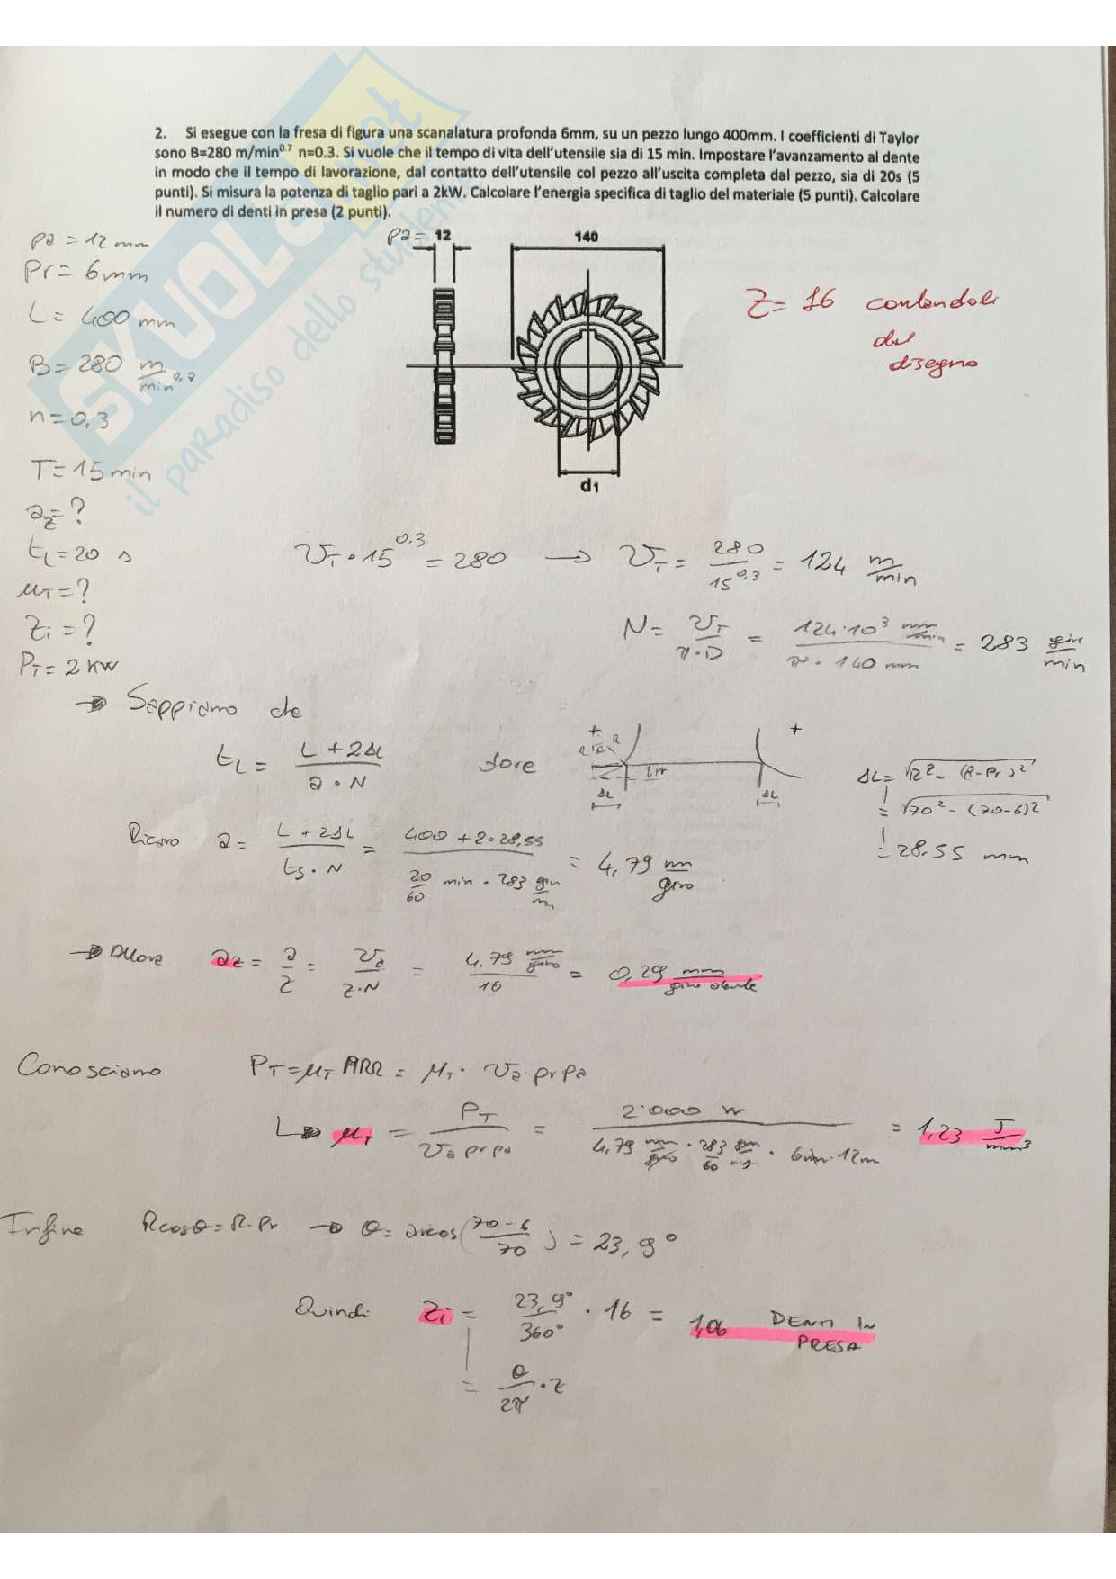 2. Si esegue con la fresa di figura una scanalatura profonda 6mm, su un pezzo lungo 400mm. I coefficienti di Taylor
sono B=280 m/min^0.7 n=0.3. Si vuole che il tempo di vita dell'utensile sia di 15 min. Impostare l'avanzamento al dente
in modo che il tempo di lavorazione, dal contatto dell'utensile col pezzo all'uscita completa dal pezzo, sia di 20s (5
punti). Si misura la potenza di taglio pari a 2kW. Calcolare l'energia specifica di taglio del materiale (5 punti). Calcolare
il numero di denti in presa (2 punti).
pa = 12 mm
pr = 6 mm
L = 400 mm
B = 280 m/min^0,7
n = 0,3
T = 15 min
az = ?
tL = 20 s
μT = ?
Zi = ?
PT = 2 kW
pa = 12
140
d1
Z = 16 contandoli
dal
disegno
SKUOLA.net
il paradiso dello studente
VT · 15^0.3 = 280 → VT = 280/15^0,3 = 124 m/min
N = VT/(π·D) = (124·10³ mm/min)/(π·140 mm) = 283 giri/min
→ Sappiamo che
tL = (L + 2ΔL)/(a·N) dove
ΔL
ΔL
ΔL = √(R² - (R-Pr)²)
= √(70² - (70-6)²)
= 28.55 mm
Ricavo a = (L + 2ΔL)/(ts·N) = (400 + 2·28,55)/(20/60 min · 283 giri/m) = 4,79 mm/giro
→ Allora az = a/z = Va/(z·N) = (4,79 mm/giro)/16 = 0,29 mm/giro dente
Conosciamo PT = μT MRR = μT · Va pr pa
↳ μT = PT/(Va pr pa) = 2·000 W/(4,79 mm/giro · 283/60 giri/s · 6mm·12m) = 1,23 J/mm³
Infine Rcosθ = R-Pr → θ = arcos((70-6)/70) = 23,9°
Quindi Zi = 23,9°/360° · 16 = 1,06 DENTI IN
PRESA
= θ/2π · z